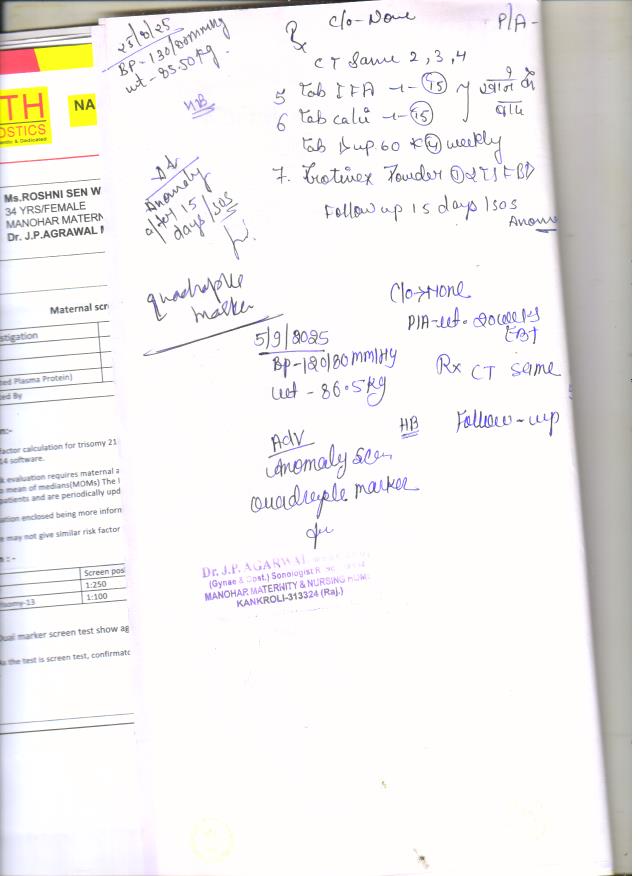 TH
OSTICS
NA
Ms.ROSHNI SEN W
34 YRS/FEMALE
MANOHAR MATERN
Dr. J.P.AGRAWAL
Maternal scr
stigation
ted Plasma Protein)
ed By
n:-
factor calculation for trisomy 21
14 software.
k evaluation requires maternal a
mean of medians(MOMs) The
patients and are periodically upd
ation enclosed being more inforn
may not give similar risk factor
n : -
Screen pos
1:250
isomy-13 1:100
Dual marker screen test show ag
As the test is screen test, confirmatc
25/8/25
BP-130/80mmHg
wt-85.50kg.
HB
Anomaly
after 15
days/SOS
quadruple
marker
Rx C/o-None P/A-
CT Same 2, 3, 4
5 Tab IFA 15
6 Tab calci 15
Tab 60 K 4 weekly
7. Protinex Powder 2TSF BD
Follow up 15 days/SOS
5/9/2025
BP-120/80 mmHg
wt - 86.5kg
C/o→None
P/A-ut. 20weeks
Rx CT Same
HB Follow-up
Adv
Anomaly Scan
Quadruple marker
Dr. J.P. AGARWAL
(Gynae & Obst.) Sonologist
MANOHAR MATERNITY & NURSING HOME
KANKROLI-313324 (Raj.)